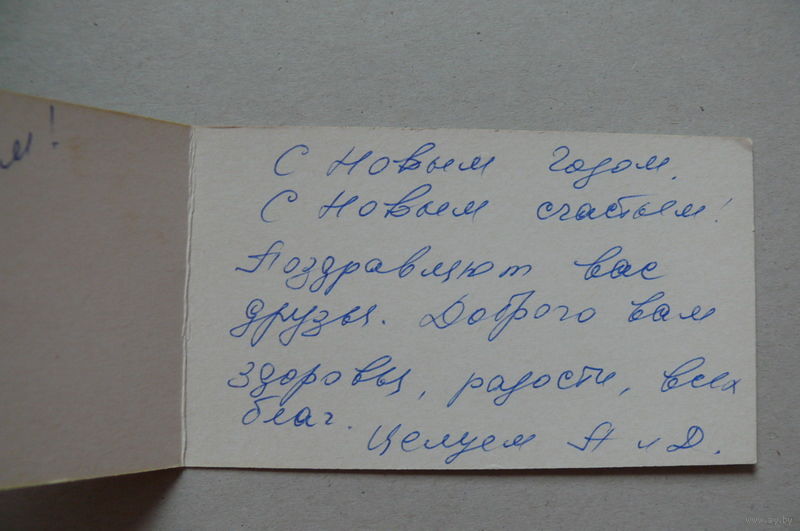 м!
С Новым Годом.
С Новым счастьем!
Поздравляют вас
друзья. Доброго вам
здоровья, радости, всех
благ.
Целуем А и Д.
www.ay.by